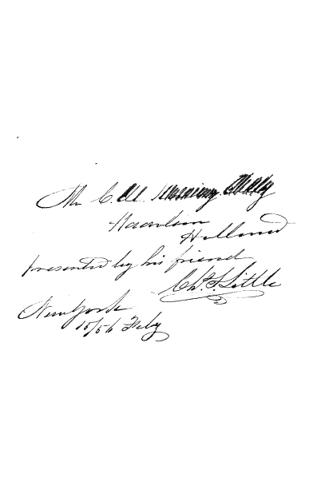 Mr C. M.
Haarlem
Holland
presented by his friend
Chs. S. Little
New York
15/56 July